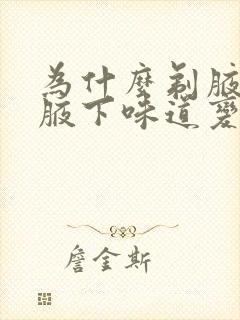 為什麼剃腋
腋下味道變
詹金斯